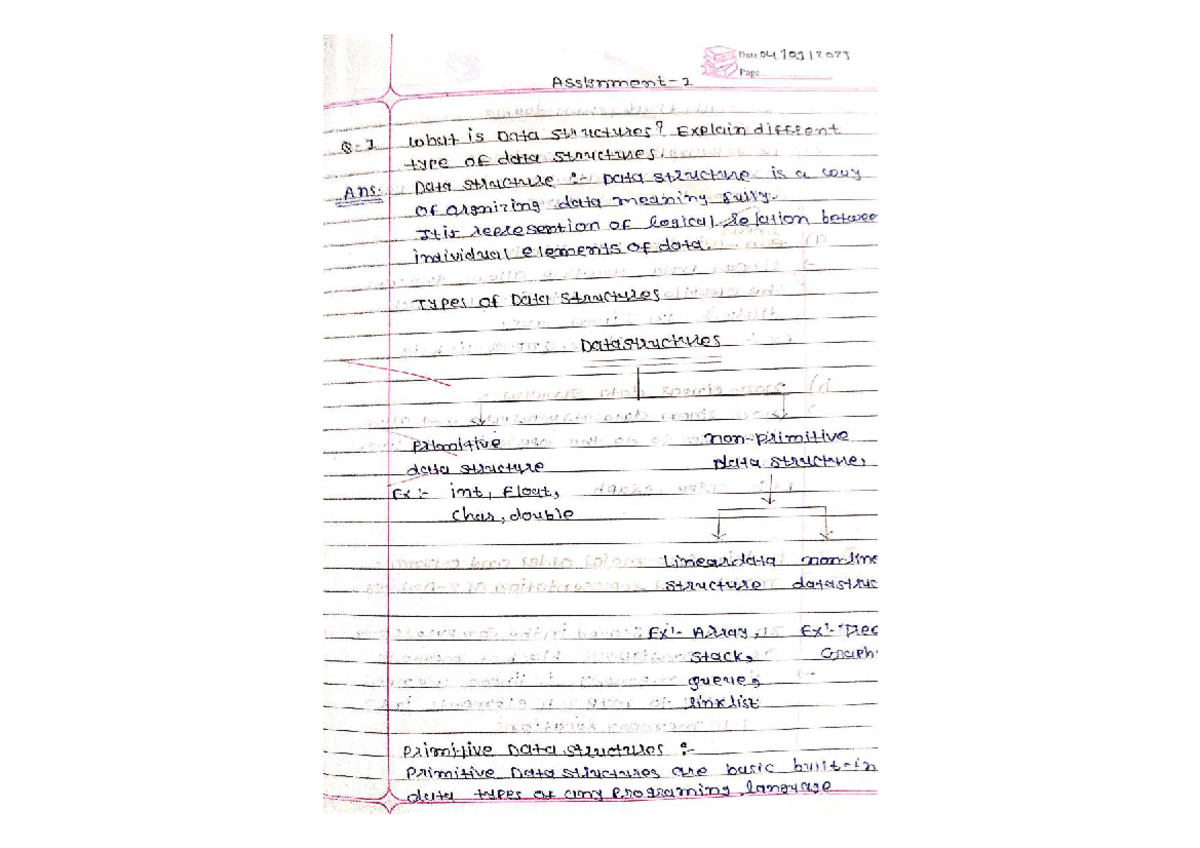 Date 04/09/2023
Page
Assignment-1
Q-1 What is Data structures? Explain diffrent
type of data structures.
Ans:- Data structure :- Data structure is a way
of orgnizing data meaning fully.
It is represention of logical relation betwee
individual elements of data.
Types of Data structures
Datastructures
Primitive non-primitive
data structure data structure,
Ex:- int, float,
char, double
Linear data non-line
structure datastruc
Ex:- Array, Ex:- Tree
stack, Graph
queue,
linklist
Primitive Data structures :-
Primitive Data structures are basic built-in
data types of any Programing language